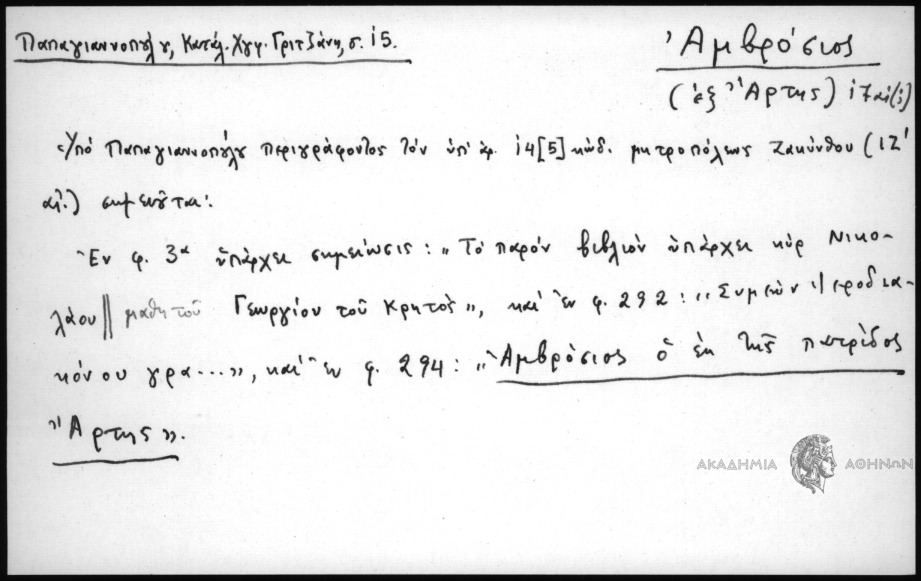 Παπαγιαννοπούλου, Κατάλ. Χγφ. Γριτζάνη, σ. 15.
Ἀμβρόσιος
(ἐξ Ἄρτης)
Ὑπό Παπαγιαννοπούλου περιγράφοντος τόν ὑπ' ἀρ. 14[5] κώδ. μητροπόλεως Ζακύνθου (ΙΖ'
αἰ.) σημειοῦται:
Ἐν φ. 3α ὑπάρχει σημείωσις: „Τό παρόν βιβλίον ὑπάρχει κύρ Νικο-
λάου || μαθητοῦ Γεωργίου τοῦ Κρητός», καί ἐν φ. 292: „Συμεών Ἱεροδια-
κόνου γρα...», καί ἐν φ. 294: „Ἀμβρόσιος ὁ ἐκ τῆς πατρίδος
Ἄρτης».
ΑΚΑΔΗΜΙΑ ΑΘΗΝΩΝ